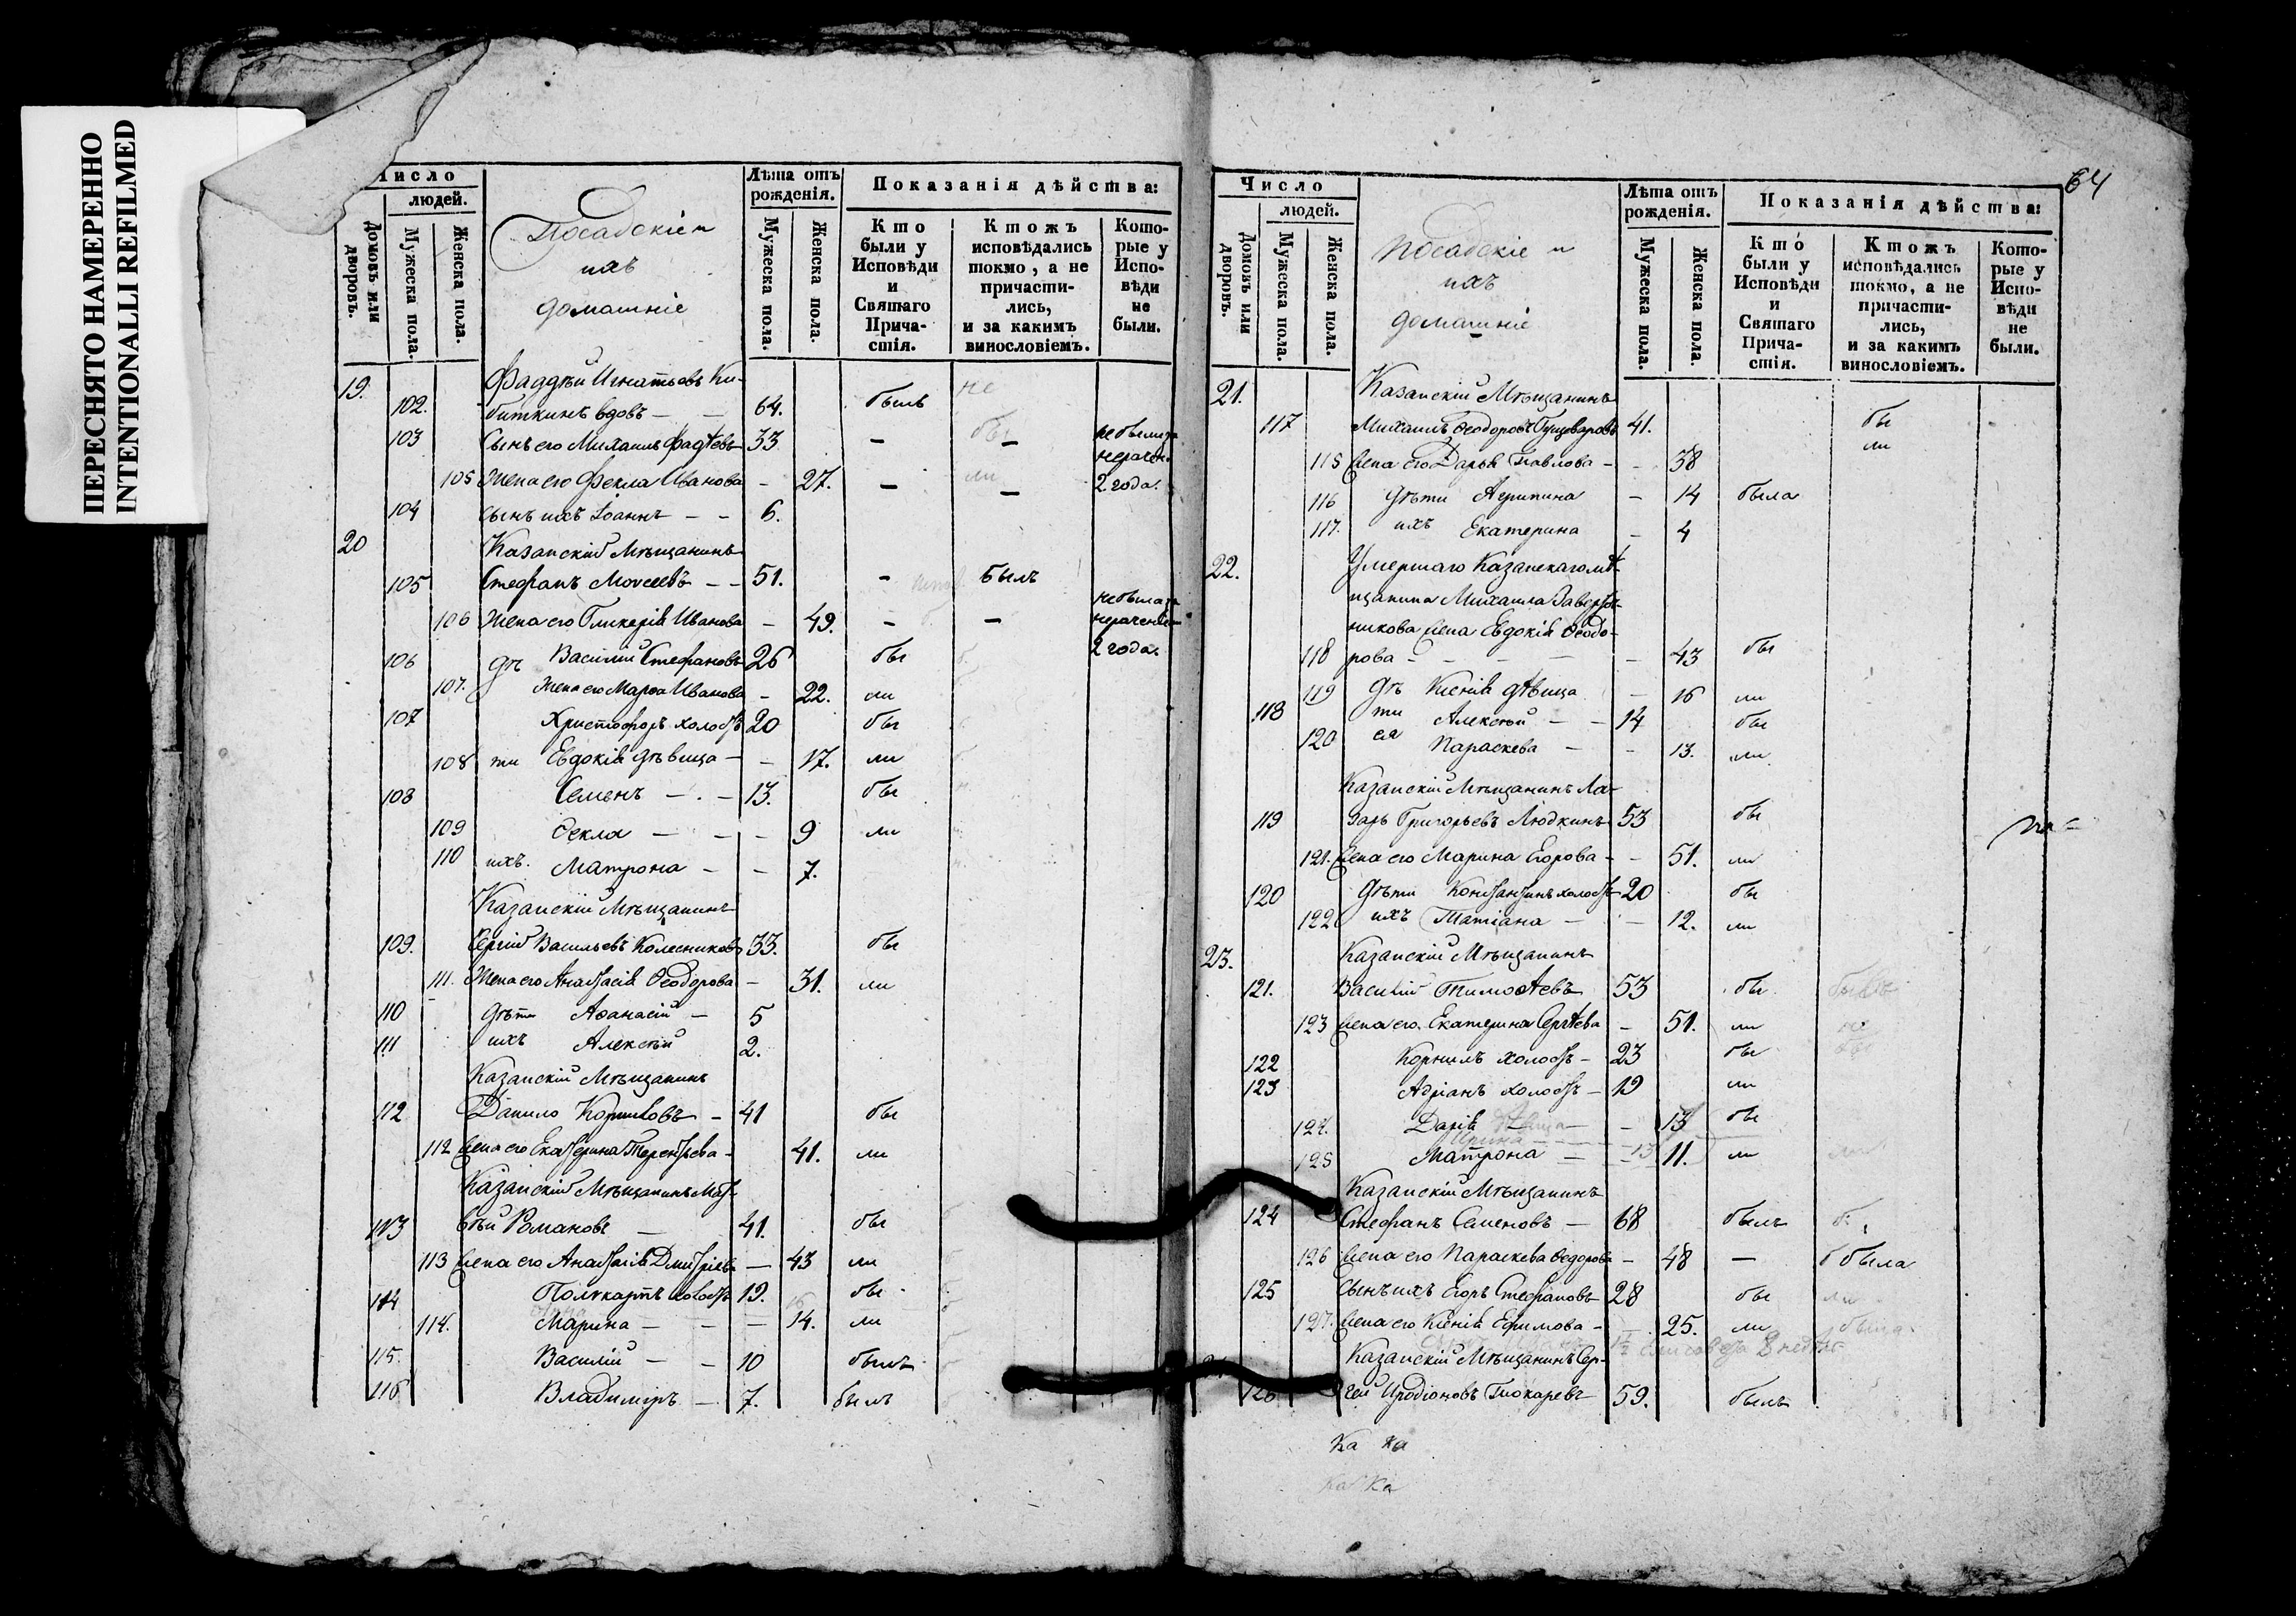 ПЕРЕСНЯТО НАМЕРЕННО
INTENTIONALLI REFILMED
Число
людей.
Домовъ или дворовъ.
Мужеска пола.
Женска пола.
Посадскіе и
ихъ
домашніе
Лѣта отъ рожденія.
Мужеска пола.
Женска пола.
Показанія дѣйства:
Кто были у Исповѣди и Святаго Прича-стія.
Ктожъ исповѣдались токмо, а не причасти-лись, и за какимъ винословіемъ.
Кото-рые у Испо-вѣди не были.
19. Фаддѣй Игнатьевъ Ки-
102. биткинъ вдовъ — — 64. былъ
103 Сынъ его Михаилъ Фадѣевъ 33 — —
105 Жена его Фекла Иванова — 27. — — 2 года.
104 сынъ ихъ Іоаннъ — — 6.
20 Казанскій Мѣщанинъ
105 Стефанъ Моѵсеевъ — — 51. — былъ
106 Жена его Гликерія Иванова — 49. — —
106 дѣ Василій Стефановъ 26 бы 2 года.
107. Жена его Марѳа Иванова — 22. ли
107 Христофоръ холостъ 20 бы
108 ти Евдокія дѣвица — — 17. ли
108 Семенъ — . — 13. бы
109 Ѳекла — — — 9 ли
110 ихъ. Матрона — — 7.
Казанскій Мѣщанинъ
109. Сергій Васильевъ Колесниковъ 33. бы
111. Жена его Анастасія Ѳеодорова — 31. ли
110 дѣти Аѳанасій — 5
111 ихъ Алексѣй 2.
Казанскій Мѣщанинъ
112 Данило Корниловъ — 41 бы
112 Жена его Екатерина Терентьева — 41. ли
Казанскій Мѣщанинъ Мат-
113 вѣй Романовъ — 41. бы
113 Жена его Анастасія Дмитріева — 43 ли
114 Поликарпъ холостъ 19. бы
114. Марина — — — 14. ли
115. Василій — — 10 былъ
116 Владимиръ — 7. былъ
64
Число
людей.
Домовъ или дворовъ.
Мужеска пола.
Женска пола.
Посадскіе и
ихъ
домашніе
Лѣта отъ рожденія.
Мужеска пола.
Женска пола.
Показанія дѣйства:
Кто были у Исповѣди и Святаго Прича-стія.
Ктожъ исповѣдались токмо, а не причасти-лись, и за какимъ винословіемъ.
Кото-рые у Испо-вѣди не были.
21. Казанскій Мѣщанинъ
117 Михаилъ Ѳеодоровъ 41. бы
115 Жена его Дарья Павлова — — 38 ли
116 дѣти Агрипина — 14 была
117. ихъ Екатерина — 4
22. Умершаго Казанскаго мѣ-
щанина Михаила
никова Жена Евдокія Ѳеодо-
118 рова — — — — 43 бы
119 дѣ Ксенія дѣвица — 16 ли
118 ти Алексѣй — — 14 бы
120 ея Параскева — — 13. ли
Казанскій Мѣщанинъ Ла-
119 зарь Григорьевъ Людкинъ 53 бы
121. Жена его Марина Егорова — — 51. ли
120 дѣти Константинъ холостъ 20 бы
122 ихъ Татіана — — 12. ли
23. Казанскій Мѣщанинъ
121. Василій Тимоѳѣевъ 53 бы
123 Жена его Екатерина Сергѣева — 51. ли
122 Корнилъ холостъ — 23 бы
123 Адріанъ холостъ — 19 ли
124. Дарія — — 13 бы
125 Матрона — — 11. ли
Казанскій Мѣщанинъ
124 Стефанъ Семеновъ — 68 былъ
126 Жена его Параскева Ѳедорова — 48 — была
125 Сынъ ихъ Егоръ Стефановъ 28 бы
127. Жена его Ксенія Ефимова — — 25. ли
Казанскій Мѣщанинъ Сер-
126 гей Иродіоновъ Токаревъ 59. былъ